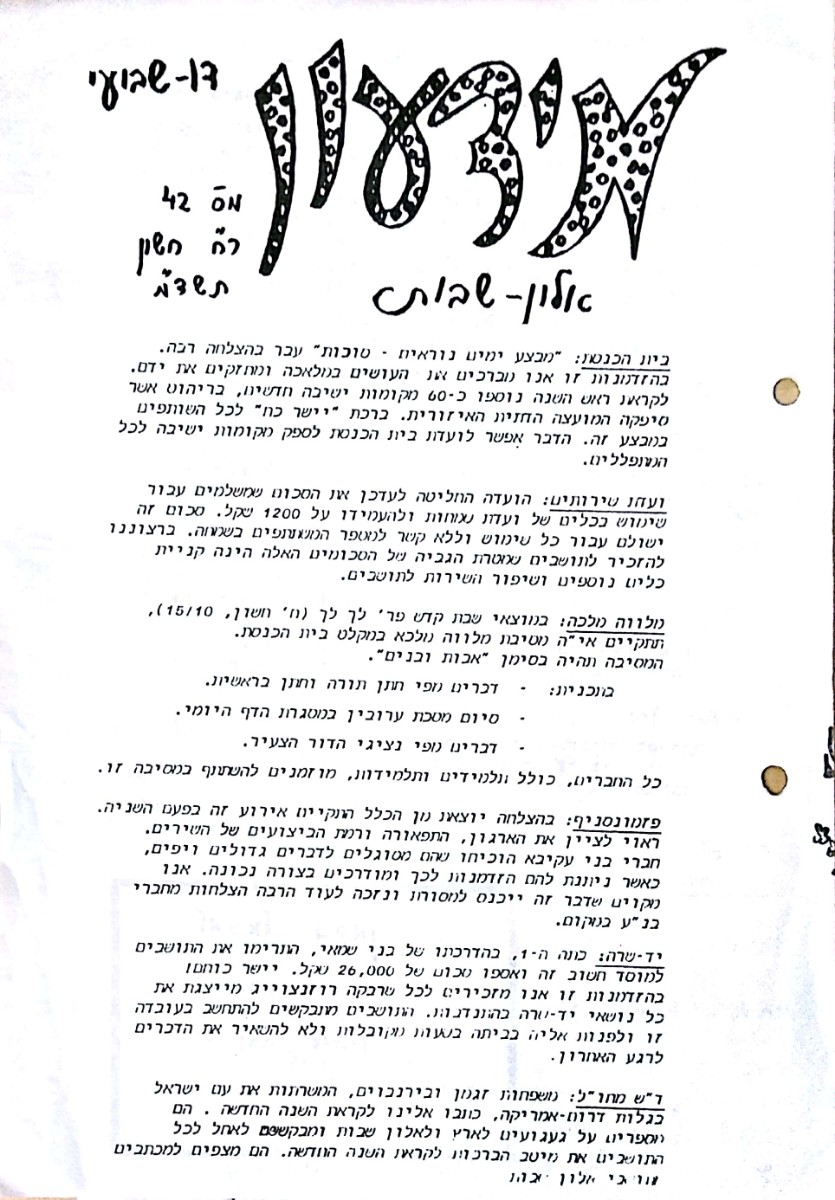 דו-שבועי
מידעון
מס' 42
ר"ח חשון
תשד"מ
אלון-שבות
בית הכנסת: "מבצע ימים נוראים - סוכות" עבר בהצלחה רבה.
בהזדמנות זו אנו מברכים את העושים במלאכה ומחזקים את ידם.
לקראת ראש השנה נוספו כ-60 מקומות ישיבה חדשים, בריהוט אשר
סיפקה המועצה הדתית האיזורית. ברכת "יישר כח" לכל השותפים
במבצע זה. הדבר אפשר לועדת בית הכנסת לספק מקומות ישיבה לכל
המתפללים.
ועדת שירותים: הועדה החליטה לעדכן את הסכום שמשלמים עבור
שימוש בכלים של ועדת שמחות ולהעמידו על 1200 שקל. סכום זה
ישולם עבור כל שימוש וללא קשר למספר המשתתפים בשמחה. ברצוננו
להזכיר לתושבים שמטרת הגביה של הסכומים האלה הינה קניית
כלים נוספים ושיפור השירות לתושבים.
מלווה מלכה: במוצאי שבת קדש פר' לך לך (ח' חשון, 15/10),
תתקיים אי"ה מסיבת מלווה מלכא במקלט בית הכנסת.
המסיבה תהיה בסימן "אבות ובנים".
בתכנית: - דברים מפי חתן תורה וחתן בראשית.
- סיום מסכת ערובין במסגרת הדף היומי.
- דברים מפי נציגי הדור הצעיר.
כל החברים, כולל תלמידים ותלמידות, מוזמנים להשתתף במסיבה זו.
פזמונסניף: בהצלחה יוצאת מן הכלל התקיים אירוע זה בפעם השניה.
ראוי לציין את הארגון, התפאורה ורמת הביצועים של השירים.
חברי בני עקיבא הוכיחו שהם מסוגלים לדברים גדולים ויפים,
כאשר ניתנת להם הזדמנות לכך ומודרכים בצורה נכונה. אנו
מקוים שדבר זה ייכנס למסורת ונזכה לעוד הרבה הצלחות מחברי
בנ"ע במקום.
יד-שרה: כתה ה-1, בהדרכתו של בני שמאי, התרימו את התושבים
למוסד חשוב זה ואספו סכום של 26,000 שקל. יישר כוחם!
בהזדמנות זו אנו מזכירים לכל שרבקה רוזנצוייג מייצגת את
כל נושאי יד-שרה בהתנדבות. התושבים מתבקשים להתחשב בעובדה
זו ולפנות אליה בביתה בשעות מקובלות ולא להשאיר את הדברים
לרגע האחרון.
ד"ש מחו"ל: משפחות זגמן ובירנבוים, המשרתות את עם ישראל
בגלות דרום-אמריקה, כתבו אלינו לקראת השנה החדשה . הם
מספרים על געגועים לארץ ולאלון שבות ומבקשים לאחל לכל
התושבים את מיטב הברכות לקראת השנה החדשה. הם מצפים למכתבים
אלון שבות